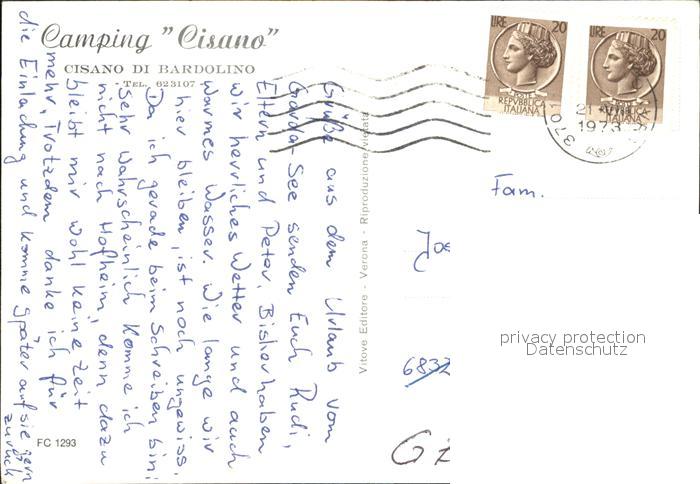 Camping "Cisano"
CISANO DI BARDOLINO
- TEL. 623107 -
Grüße aus dem Urlaub vom
Garda-See senden Euch Rudi,
Eltern und Peter. Bisher haben
wir herrliches Wetter und auch
warmes Wasser. Wie lange wir
hier bleiben, ist noch ungewiss.
Da ich gerade beim Schreiben bin:
Sehr wahrscheinlich komme ich
nicht nach Hofheim, denn dazu
bleibt mir wohl keine Zeit
mehr. Trotzdem danke ich für
die Einladung und komme später auf sie gern
zurück
FC 1293
Vitove Editore - Verona - Riproduzione vietata
LIRE 20
POSTE
REPVBBLICA
ITALIANA
LIRE 20
ITALIANA
21
1973
Fam.
6832
privacy protection
Datenschutz